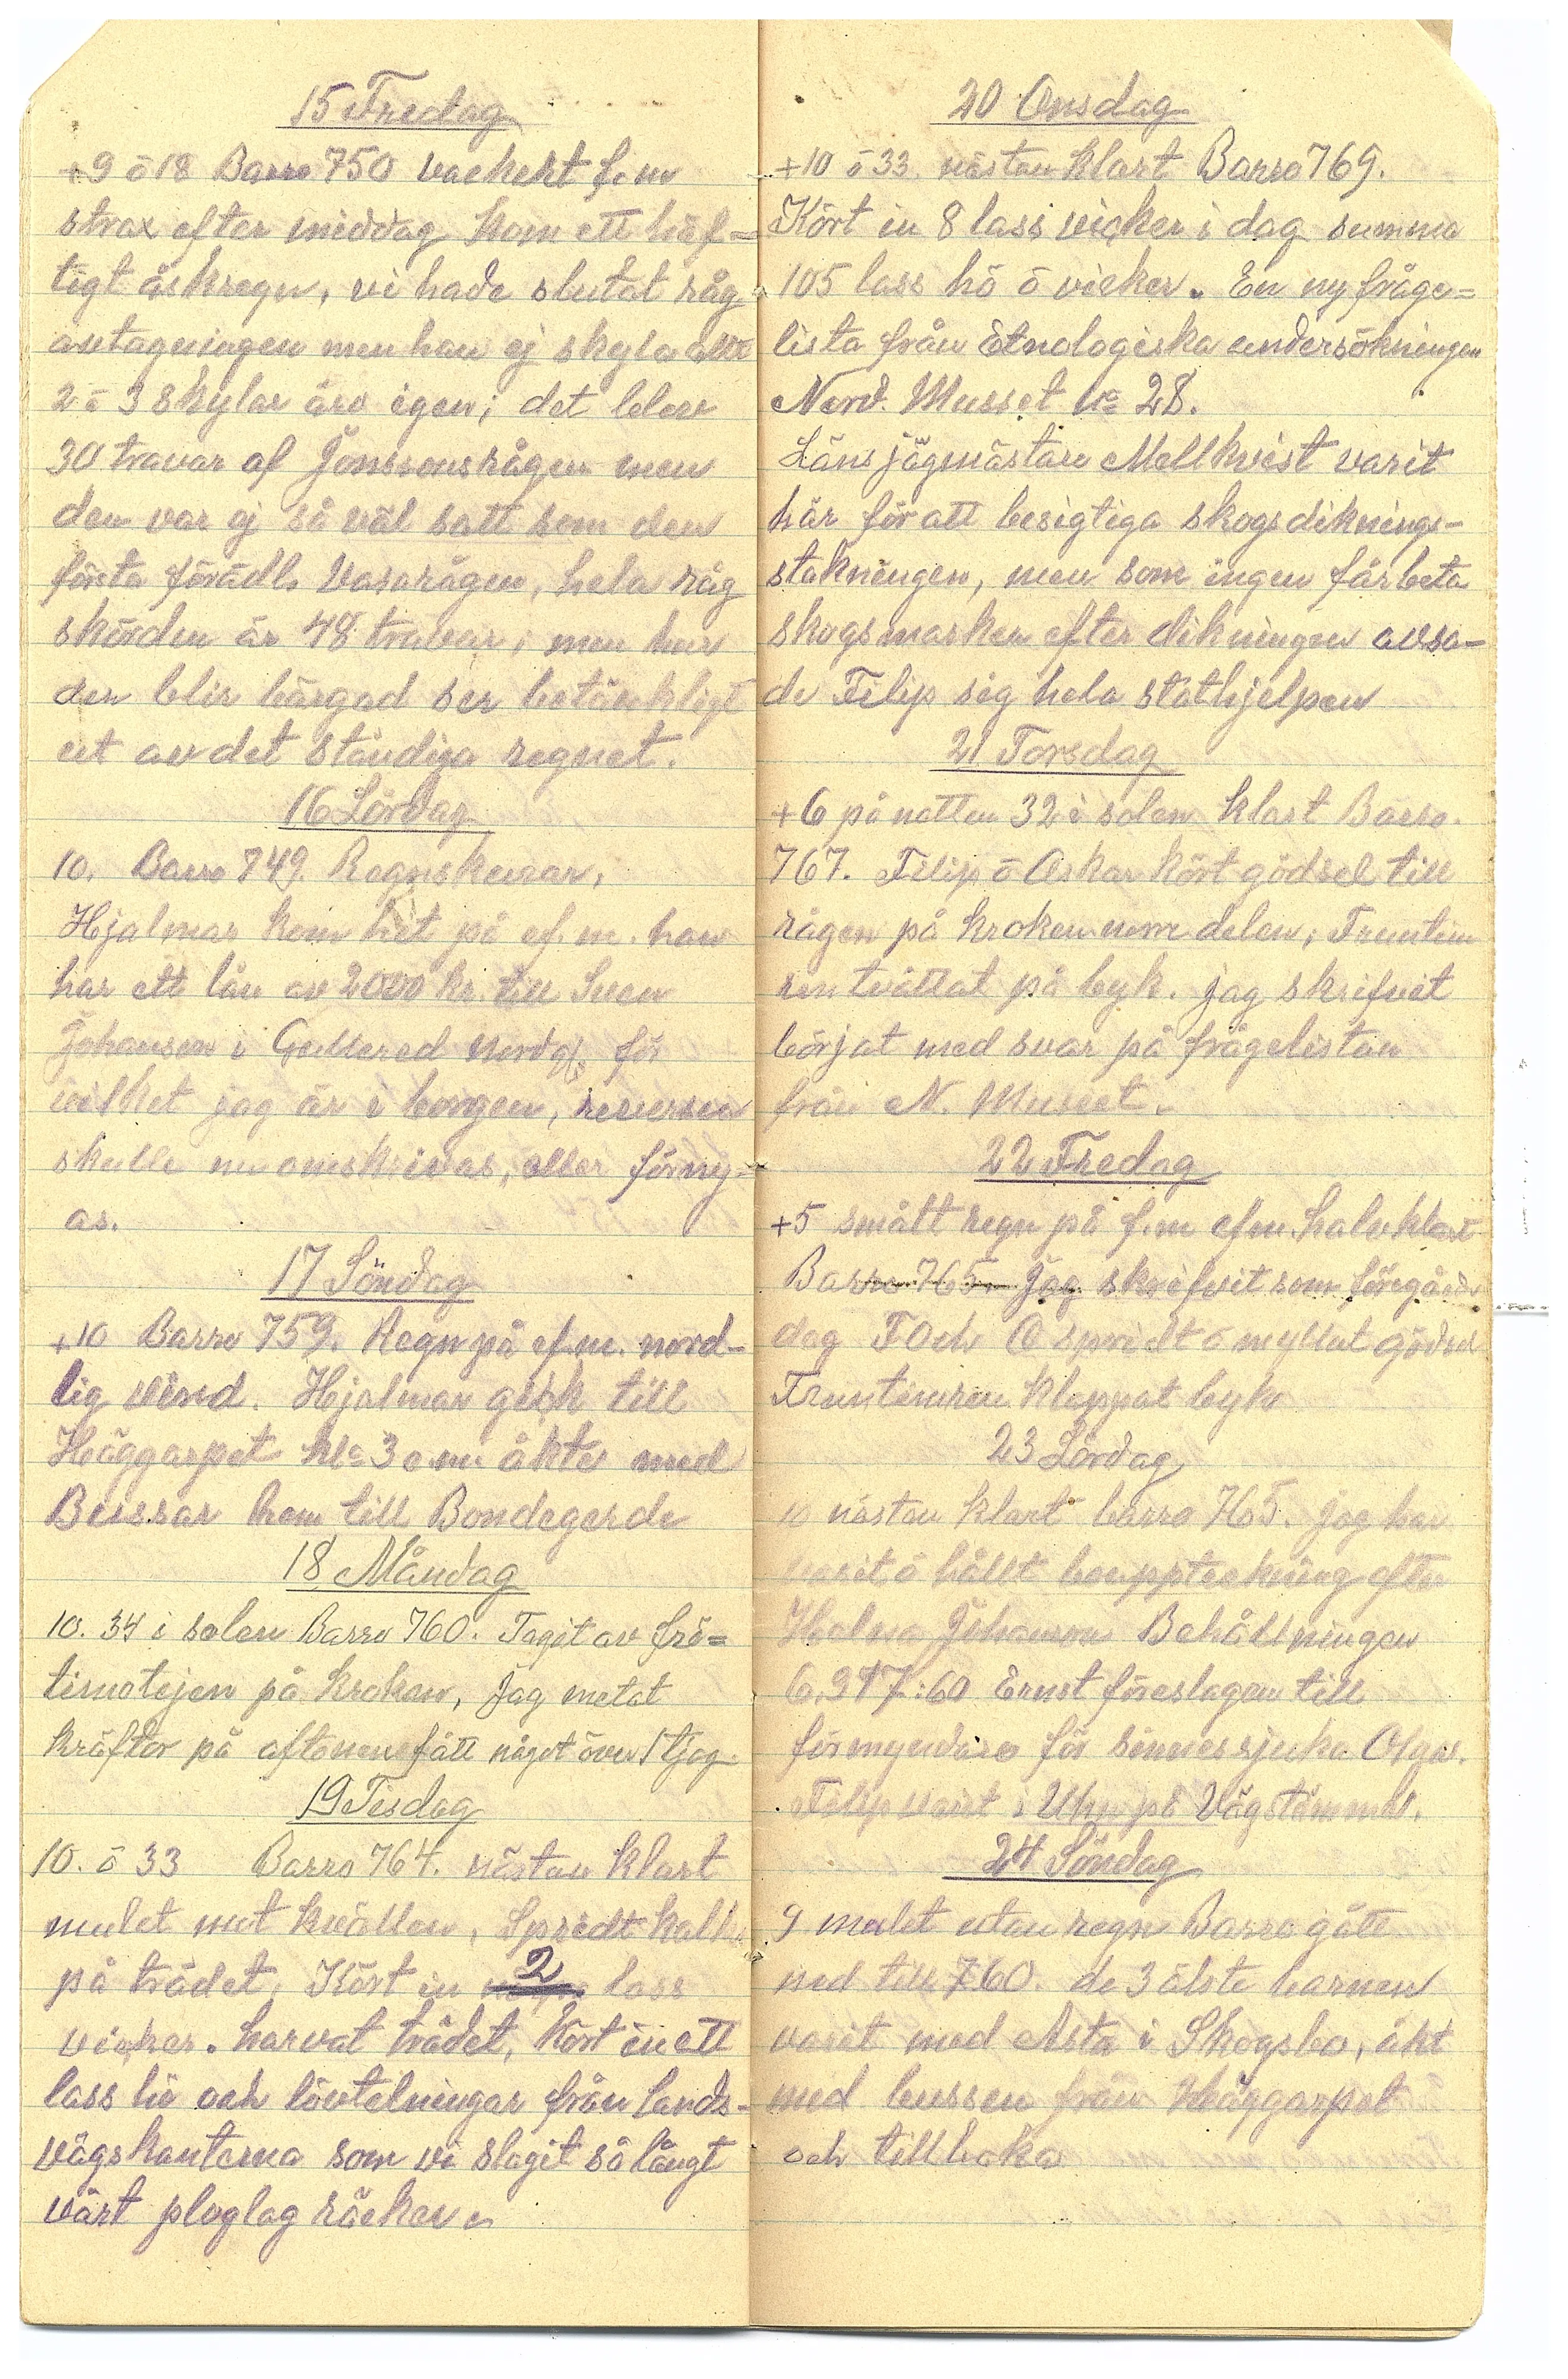 15 Fredag
+9 ö 18 Barro 750 vackert f.m
strax efter middag kom ett häf=
tigt åskregn, vi hade slutat råg
avtagningen men han ej skyla allt
2 ö 3 skylar äro igen; det blev
30 travar af Jonssonsrågen men
den var ej så väl satt som den
första förädl. Vasarågen, hela råg
skörden är 48 travar, men hur
den blir bärgad ser betänkligt
ut av det ständiga regnet.
16 Lördag
10. Barro 749. Regnskurar,
Hjalmar kom hit på ef.m. han
har ett lån av 2000 kr. till Sven
Johanson i Gullered för
vilket jag är i borgen, reversen
skulle nu omskrivas, eller förny=
as.
17 Söndag
+10 Barro 759. Regn på ef.m. nord-
lig vind. Hjalmar gick till
Häggarpet kl 3 e.m. åkte med
Bussar hem till Bondegerde
18 Måndag
10. 34 i solen Barro 760. Tagit av frö=
timotejen på kroken, Jag metat
kräftor på aftonen fått något över 1 tjog.
19 Tisdag
10. ö 33 Barro 764. nästan klart
mulet mot kvällen, Spridt kalk
på trädet, Kört in 2 lass
vicker. harvat trädet, Kört in ett
lass hö och lövtelningar från lands-
vägskanterna som vi slagit så långt
vårt ploglag räcker
20 Onsdag
+10 ö 33. nästan klart Barro 769.
Kört in 8 lass vicker i dag summa
105 lass hö ö vicker. En ny fråge=
lista från Etnologiska undersökningen
Nord. Musset No 28.
Länsjägmästare Mellkvist varit
här för att besigtiga skogsdiknings-
stakningen, men som ingen får beta
skogsmarken efter dikningen avsa-
de Filip sig hela stathjelpen
21 Torsdag
+6 på natten 32 i solen klart Barro.
767. Filip ö Oskar kört gödsel till
rågen på kroken norr delen, Fruntim
ren tvättat på byk. jag skrifvit
börjat med svar på frågelistan
från N. Museet.
22 Fredag
+5 smått regn på f.m ef.m. halvklart
Barro 765. Jag skrifvit som föregåede
dag F Och O spridt ö myllat gödsel
Fruntimren klappat byk
23 Lördag
10 nästan klart barro 765. jag har
varit ö hållt bouppteckning efter
Johanson Behållningen
6,917:60 Ernst föreslagen till
förmyndare för sinnessjuka Olga.
Filip varit i Uhn på Vägstämma.
24 Söndag
9 mulet utan regn Barro gått
ned till 760. de 3 älste barnen
varit med Asta i Skogsbo, åkt
med bussen från Häggarpet
och tillbaka